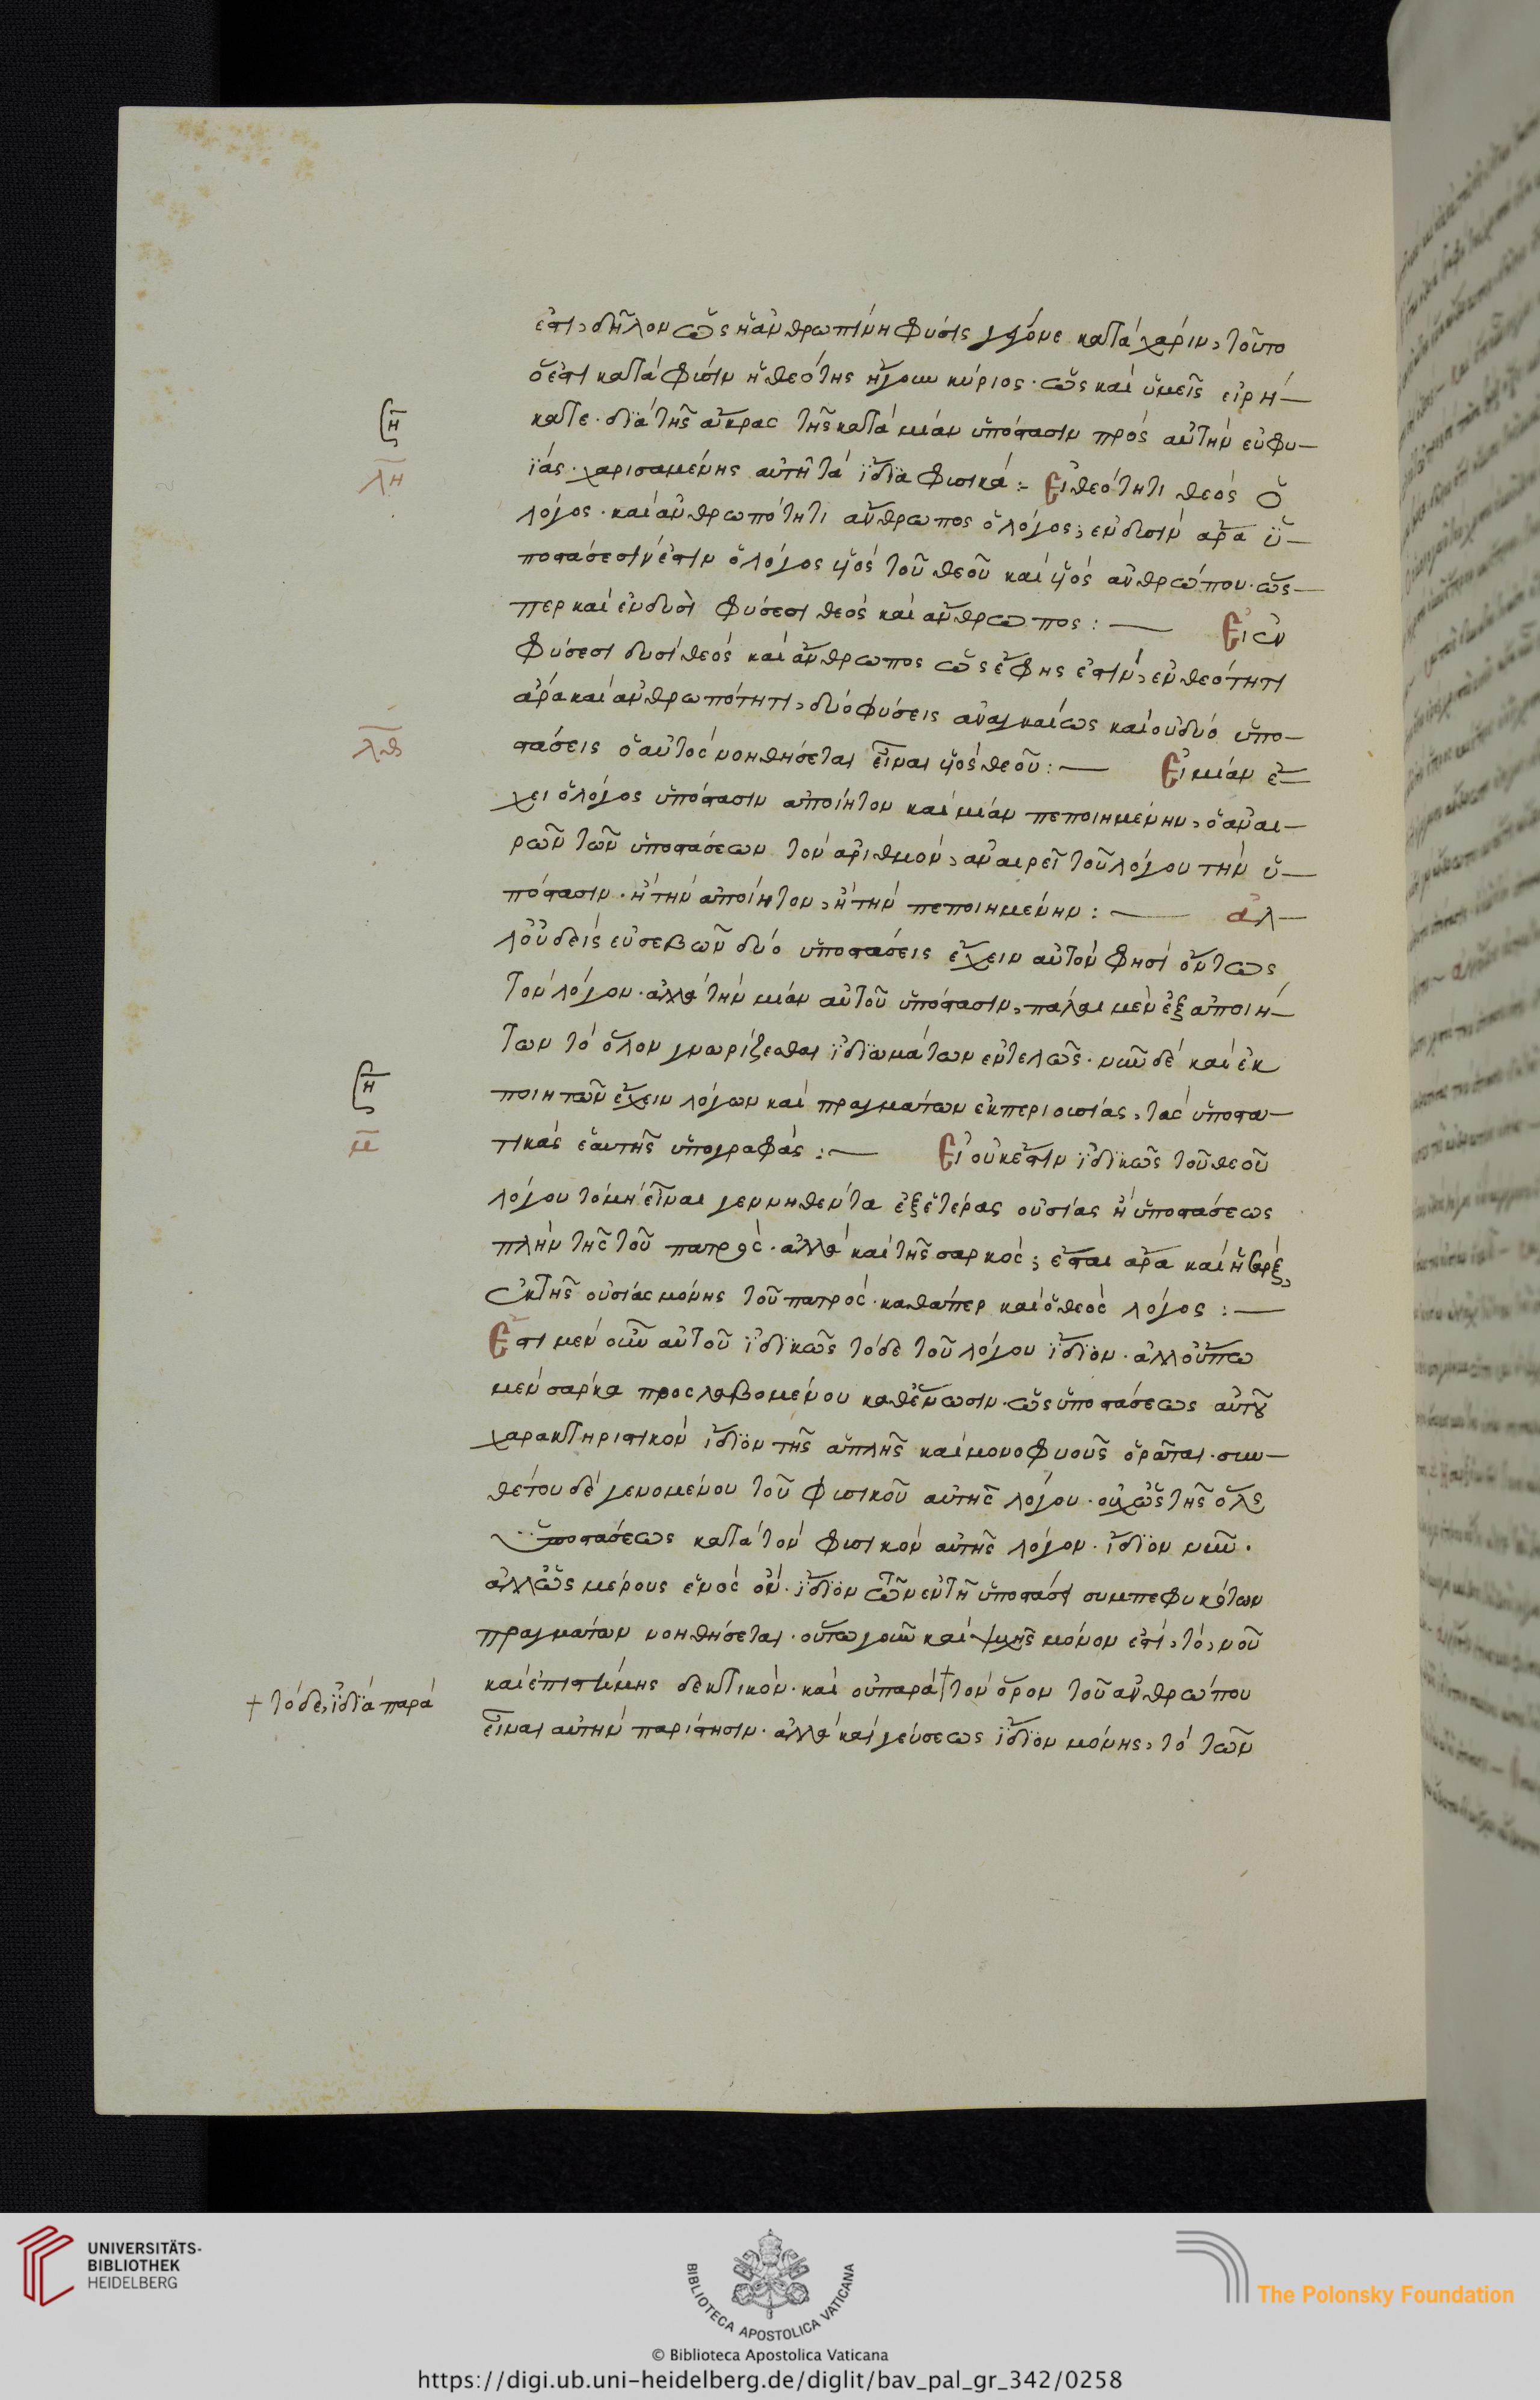 ἐστι, δῆλον ὡς ἡ ἀνθρωπίνη φύσις γέγονε κατὰ χάριν, τοῦτο
ὅ ἐστι κατὰ φύσιν ἡ θεότης ἤγουν κύριος· ὡς καὶ ὑμεῖς εἰρή-
κατε· διὰ τῆς ἄκρας τῆς κατὰ μίαν ὑπόστασιν πρὸς αὐτὴν εὐφυ-
ΐας· χαρισαμένης αὐτῇ τὰ ἴδια φυσικά :- Εἰ θεότητι θεὸς ὁ
λόγος· καὶ ἀνθρωπότητι ἄνθρωπος ὁ λόγος, ἐν δυσὶν ἄρα ὑ-
ποστάσεσίν ἐστιν ὁ λόγος υἱὸς τοῦ θεοῦ καὶ υἱὸς ἀνθρώπου· ὥσ-
περ καὶ ἐν δυσὶ φύσεσι θεὸς καὶ ἄνθρωπος :— Εἰ ἐν
φύσεσι δυσὶ θεὸς καὶ ἄνθρωπος ὡς ἔφης ἐστὶν, ἐν θεότητι
ἄρα καὶ ἀνθρωπότητι, δύο φύσεις ἀναγκαίως καὶ οὐ δύο ὑπο-
στάσεις ὁ αὐτὸς νοηθήσεται εἶναι υἱὸς θεοῦ :— Εἰ μίαν ἔ-
χει ὁ λόγος ὑπόστασιν ἀποίητον καὶ μίαν πεποιημένην, ὁ ἀναι-
ρῶν τῶν ὑποστάσεων τὸν ἀριθμὸν, ἀναιρεῖ τοῦ λόγου τὴν ὑ-
πόστασιν· ἢ τὴν ἀποίητον, ἢ τὴν πεποιημένην :— ἀλ-
λ' οὐδεὶς εὐσεβῶν δύο ὑποστάσεις ἔχειν αὐτὸν φησὶ ὄντως
τὸν λόγον· ἀλλὰ τὴν μίαν αὐτοῦ ὑπόστασιν, πάλαι μὲν ἐξ ἀποιή-
των τὸ ὅλον γνωρίζεσθαι ἰδιωμάτων ἐντελῶς· νῦν δὲ καὶ ἐκ
ποιητῶν ἔχειν λόγων καὶ πραγμάτων ἐκ περιουσίας, τὰς ὑποστα-
τικὰς ἑαυτῆς ὑπογραφάς :— Εἰ οὐκ ἔστιν ἰδικῶς τοῦ θεοῦ
λόγου τὸ μὴ εἶναι γεννηθέντα ἐξ ἑτέρας οὐσίας ἢ ὑποστάσεως
πλὴν τῆς τοῦ πατρός· ἀλλὰ καὶ τῆς σαρκός; ἔσται ἄρα καὶ ἡ σὰρξ,
ἐκ τῆς οὐσίας μόνης τοῦ πατρός· καθάπερ καὶ ὁ θεὸς λόγος :—
Ἔστι μὲν οὖν αὐτοῦ ἰδικῶς τόδε τοῦ λόγου ἴδιον· ἀλλ' οὔπω
μὲν σάρκα προσλαβομένου καθ' ἕνωσιν· ὡς ὑποστάσεως αὐτοῦ
χαρακτηριστικὸν ἴδιον τῆς ἁπλῆς καὶ μονοφυοῦς ὁρᾶται· συν-
θέτου δὲ γενομένου τοῦ φυσικοῦ αὐτῆς λόγου· οὐχ ὡς τῆς ὅλης
ὑποστάσεως κατὰ τὸν φυσικὸν αὐτῆς λόγον· ἴδιον νῦν·
ἀλλ' ὡς μέρους ἑνὸς ὂν· ἴδιον τῶν ἐν τῇ ὑποστάσει συμπεφυκότων
πραγμάτων νοηθήσεται· οὕτω γοῦν καὶ ψυχῆς μόνον ἐστὶ, τὸ, νοῦ
καὶ ἐπιστήμης δεκτικόν· καὶ οὐ παρὰ † τὸν ὅρον τοῦ ἀνθρώπου
εἶναι αὐτὴν παρίστησιν· ἀλλὰ καὶ γεύσεως ἴδιον μόνης, τὸ τῶν
λη
λθ
μ
† τόδε, ἰδίᾳ παρὰ
UNIVERSITÄTS-
BIBLIOTHEK
HEIDELBERG
BIBLIOTECA APOSTOLICA VATICANA
The Polonsky Foundation
© Biblioteca Apostolica Vaticana
https://digi.ub.uni-heidelberg.de/diglit/bav_pal_gr_342/0258